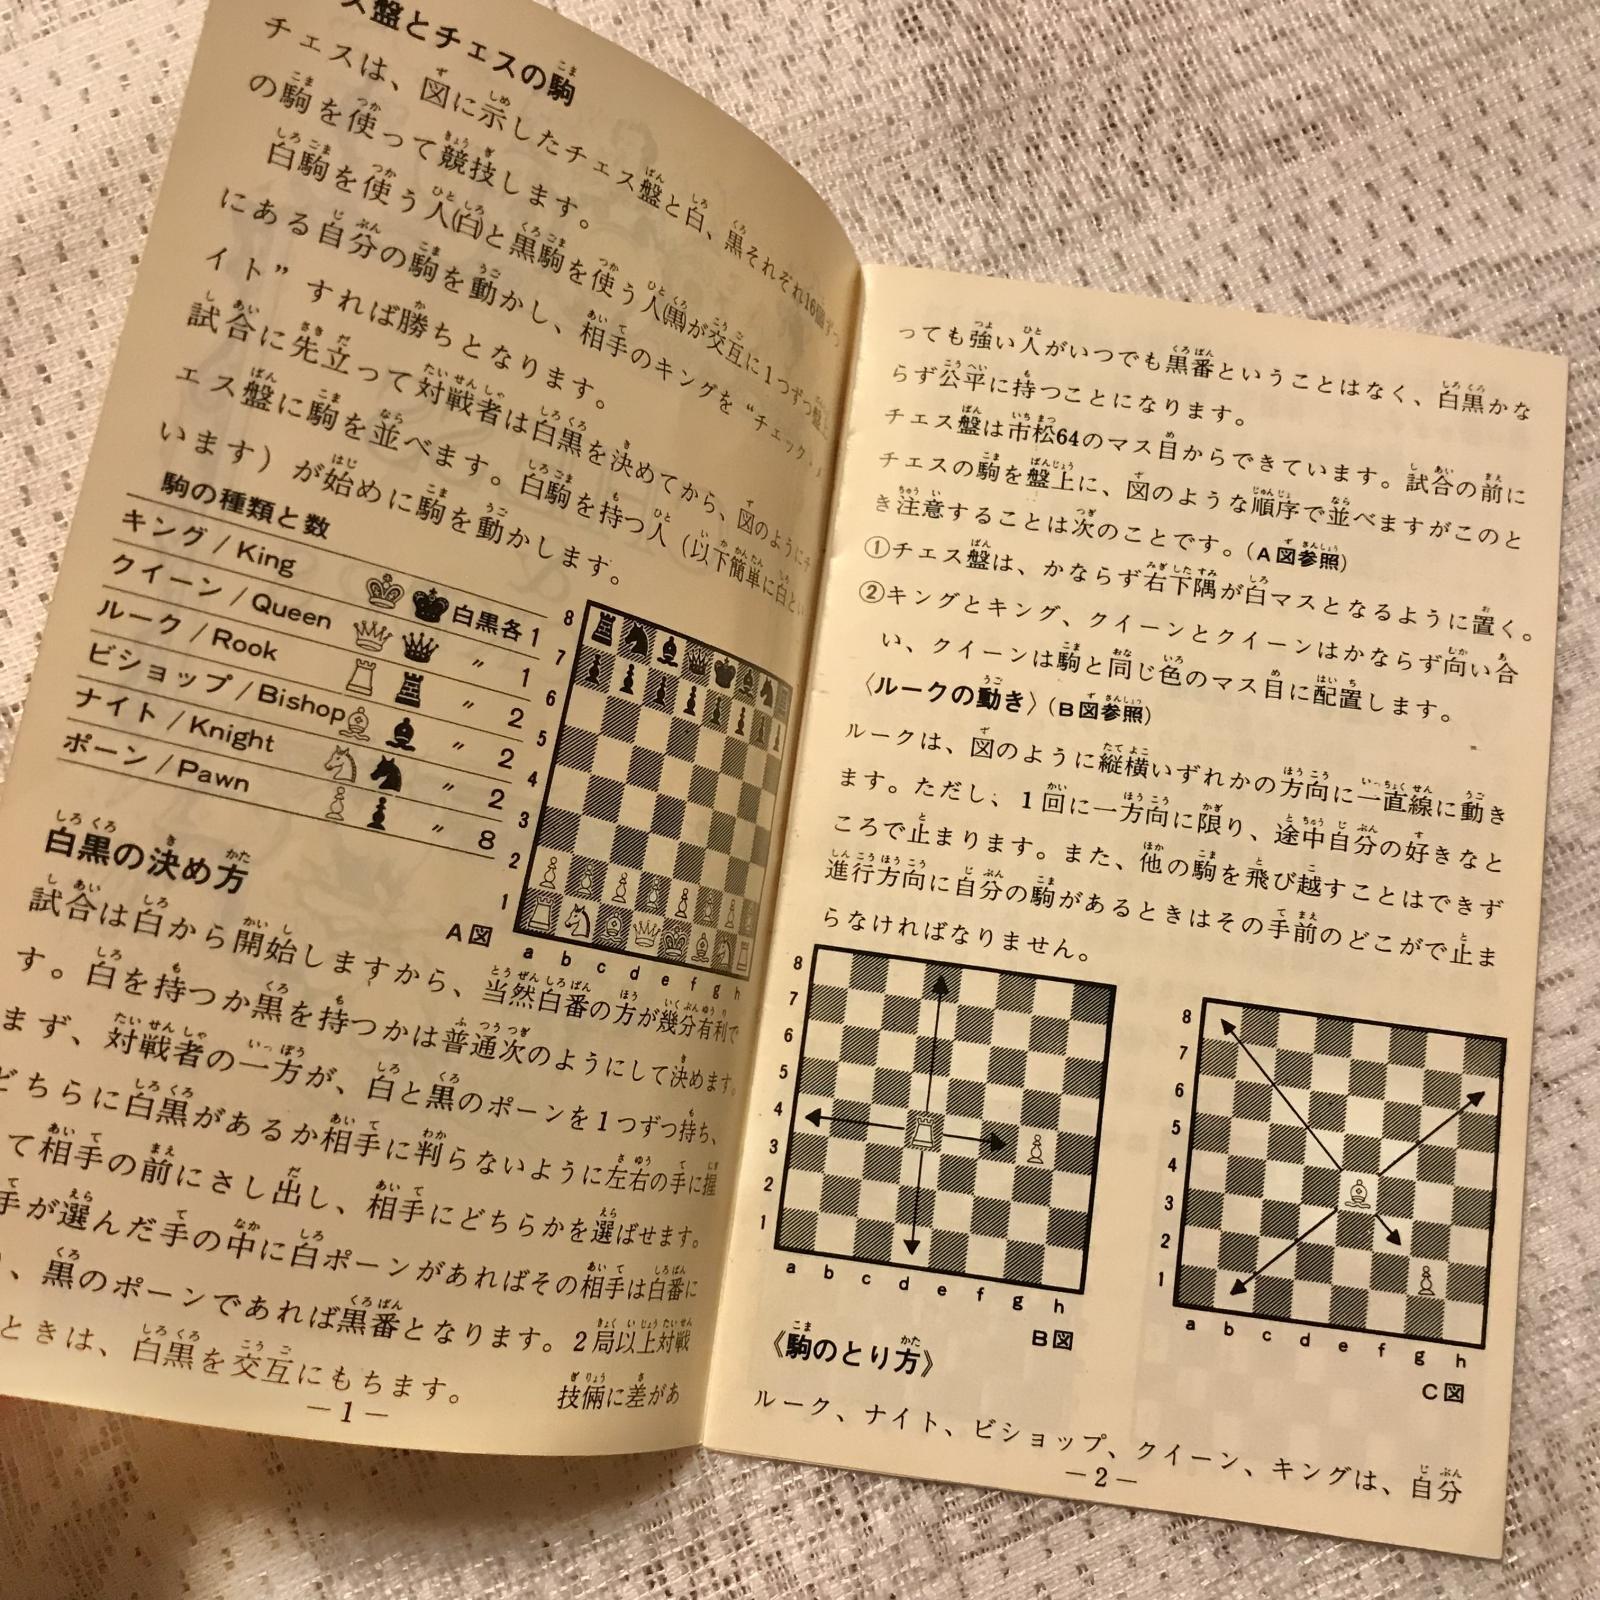 ス盤とチェスの駒
チェスは、図に示したチェス盤と白、黒それぞれ16個ずつ
の駒を使って競技します。
白駒を使う人(白)と黒駒を使う人(黒)が交互に1つずつ盤上
にある自分の駒を動かし、相手のキングを“チェック・メ
イト” すれば勝ちとなります。
試合に先立って対戦者は白黒を決めてから、図のようにチ
ェス盤に駒を並べます。白駒を持つ人(以下簡単に白とい
います)が始めに駒を動かします。
駒の種類と数
キング/King 白黒各1
クイーン/Queen 〃 1
ルーク/Rook 〃 2
ビショップ/Bishop 〃 2
ナイト/Knight 〃 2
ポーン/Pawn 〃 8
8
7
6
5
4
3
2
1
a b c d e f g h
A図
白黒の決め方
試合は白から開始しますから、当然白番の方が幾分有利で
す。白を持つか黒を持つかは普通次のようにして決めます。
まず、対戦者の一方が、白と黒のポーンを1つずつ持ち、
どちらに白黒があるか相手に判らないように左右の手に握
て相手の前にさし出し、相手にどちらかを選ばせます。
手が選んだ手の中に白ポーンがあればその相手は白番に
、黒のポーンであれば黒番となります。2局以上対戦
ときは、白黒を交互にもちます。 技倆に差があ
—1—
っても強い人がいつでも黒番ということはなく、白黒かな
らず公平に持つことになります。
チェス盤は市松64のマス目からできています。試合の前に
チェスの駒を盤上に、図のような順序で並べますがこのと
き注意することは次のことです。(A図参照)
①チェス盤は、かならず右下隅が白マスとなるように置く。
②キングとキング、クイーンとクイーンはかならず向い合
い、クイーンは駒と同じ色のマス目に配置します。
〈ルークの動き〉(B図参照)
ルークは、図のように縦横いずれかの方向に一直線に動き
ます。ただし、1回に一方向に限り、途中自分の好きなと
ころで止まります。また、他の駒を飛び越すことはできず
進行方向に自分の駒があるときはその手前のどこがで止ま
らなければなりません。
8
7
6
5
4
3
2
1
a b c d e f g h
B図
8
7
6
5
4
3
2
1
a b c d e f g h
C図
《駒のとり方》
ルーク、ナイト、ビショップ、クイーン、キングは、自分
—2—